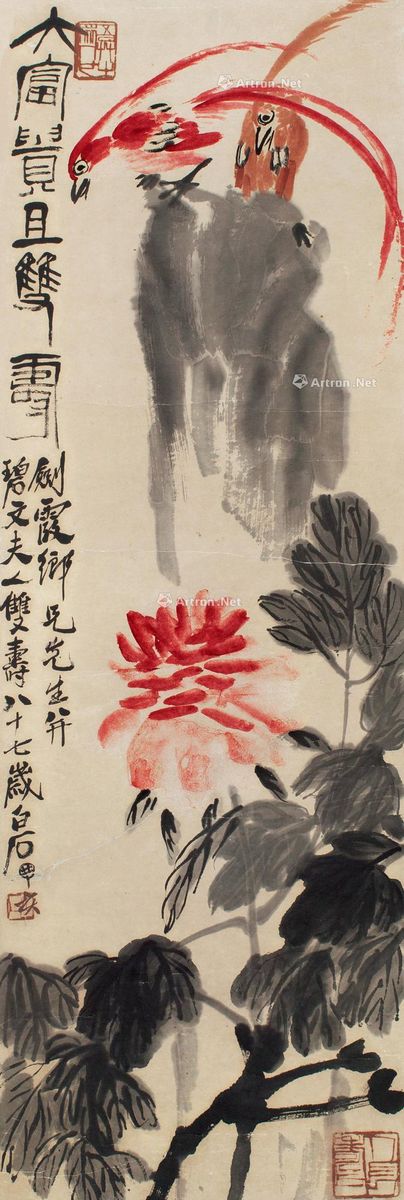 大富貴且雙壽
劍霞鄉兄先生并
碧文夫人雙壽八十七歲白石
Artron.Net
Artron.Net
Artron.Net
Artron.Net